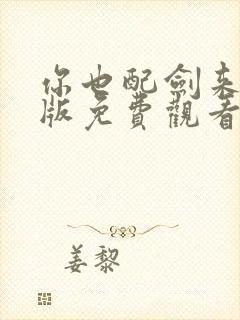 你也配劍来
版免費觀看
姜黎